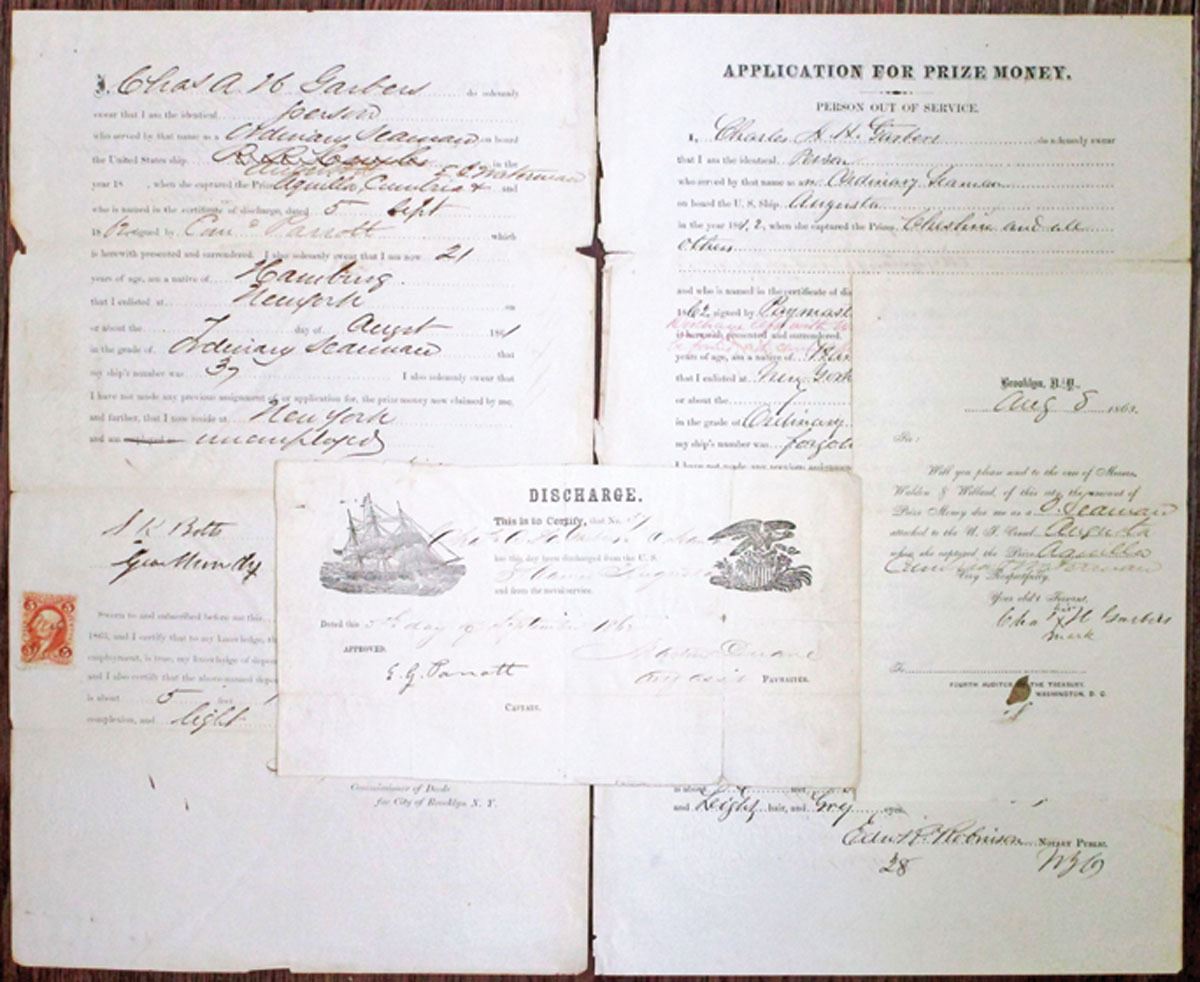 I, Chas A H Garbers do solemnly
swear that I am the identical person
who served by that name as a Ordinary Seaman on board
the United States ship Augusta in the
year 18 , when she captured the Prize Aquilla, Cumbria & E C Waterman and
who is named in the certificate of discharge, dated 5 Sept
1862 signed by Com Parrott which
is herewith presented and surrendered. I also solemnly swear that I am now 21
years of age, am a native of Hamburg
that I enlisted at New York on
or about the 7 day of Augst 1861
in the grade of Ordinary Seaman that
my ship's number was 37 I also solemnly swear that
I have not made any previous assignment of, or application for, the prize money now claimed by me,
and further, that I now reside at New York
and am unemployed
S K Botts
Sworn to and subscribed before me this
1863, and I certify that to my knowledge, th
employment, is true, my knowledge of depo
and I also certify that the above-named depo
is about 5 feet
complexion, and light
Commissioner of Deeds
for City of Brooklyn N. Y.
DISCHARGE.
This is to Certify, that No. 37
Chas A H
has this day been discharged from the U. S.
Steamer Augusta
and from the naval service.
Dated this 5th day of September 1862
APPROVED.
Martin Duane
E. G. Parrott
PAYMASTER.
CAPTAIN.
APPLICATION FOR PRIZE MONEY.
PERSON OUT OF SERVICE.
I, Charles A. H. Garbers do solemnly swear
that I am the identical Person
who served by that name as an Ordinary Seaman
on board the U. S. Ship Augusta
in the year 1862, when she captured the Prize and all
others
and who is named in the certificate of dis
1862 signed by Paymast
is herewith presented and surrendered.
years of age, am a native of
that I enlisted at New York
or about the 7
in the grade of Ordinary
my ship's number was forgot
I have not made any previous assignment
is about
and Light hair, and Grey eyes
Edw. R. Robinson NOTARY PUBLIC.
28 N Y Co
Brooklyn, N. Y.,
Aug 8 1863.
SIR:
Will you please send to the care of Messrs.
Walden & Willard, of this city, the amount of
Prize Money due me as a O. Seaman
attached to the U. S. Augusta
when she captured the Prize Aquilla
Cumbria & Waterman
Very Respectfully,
Your ob't Servant,
Chas H Garbers
his X mark
To
FOURTH AUDITOR OF THE TREASURY,
WASHINGTON, D. C.